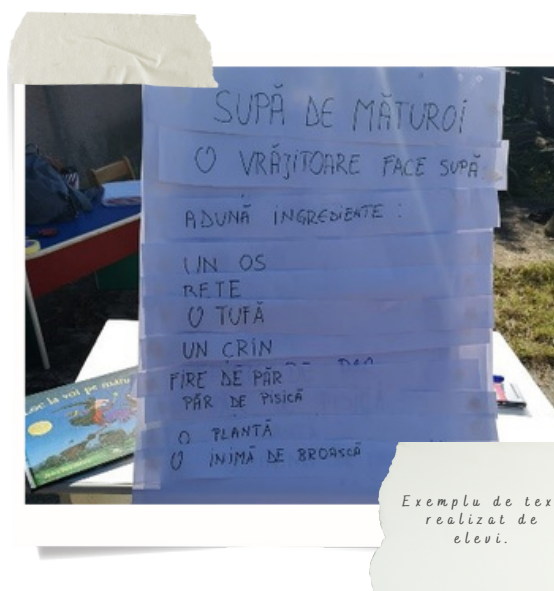 SUPĂ DE MĂTUROI
O VRĂJITOARE FACE SUPĂ
ADUNĂ INGREDIENTE :
UN OS
RETE
O TUFĂ
UN CRIN
FIRE DE PĂR
PĂR DE PISICĂ
O PLANTĂ
O INIMĂ DE BROASCĂ
loc la voi pe
Exemplu de tex
realizat de
elevi.